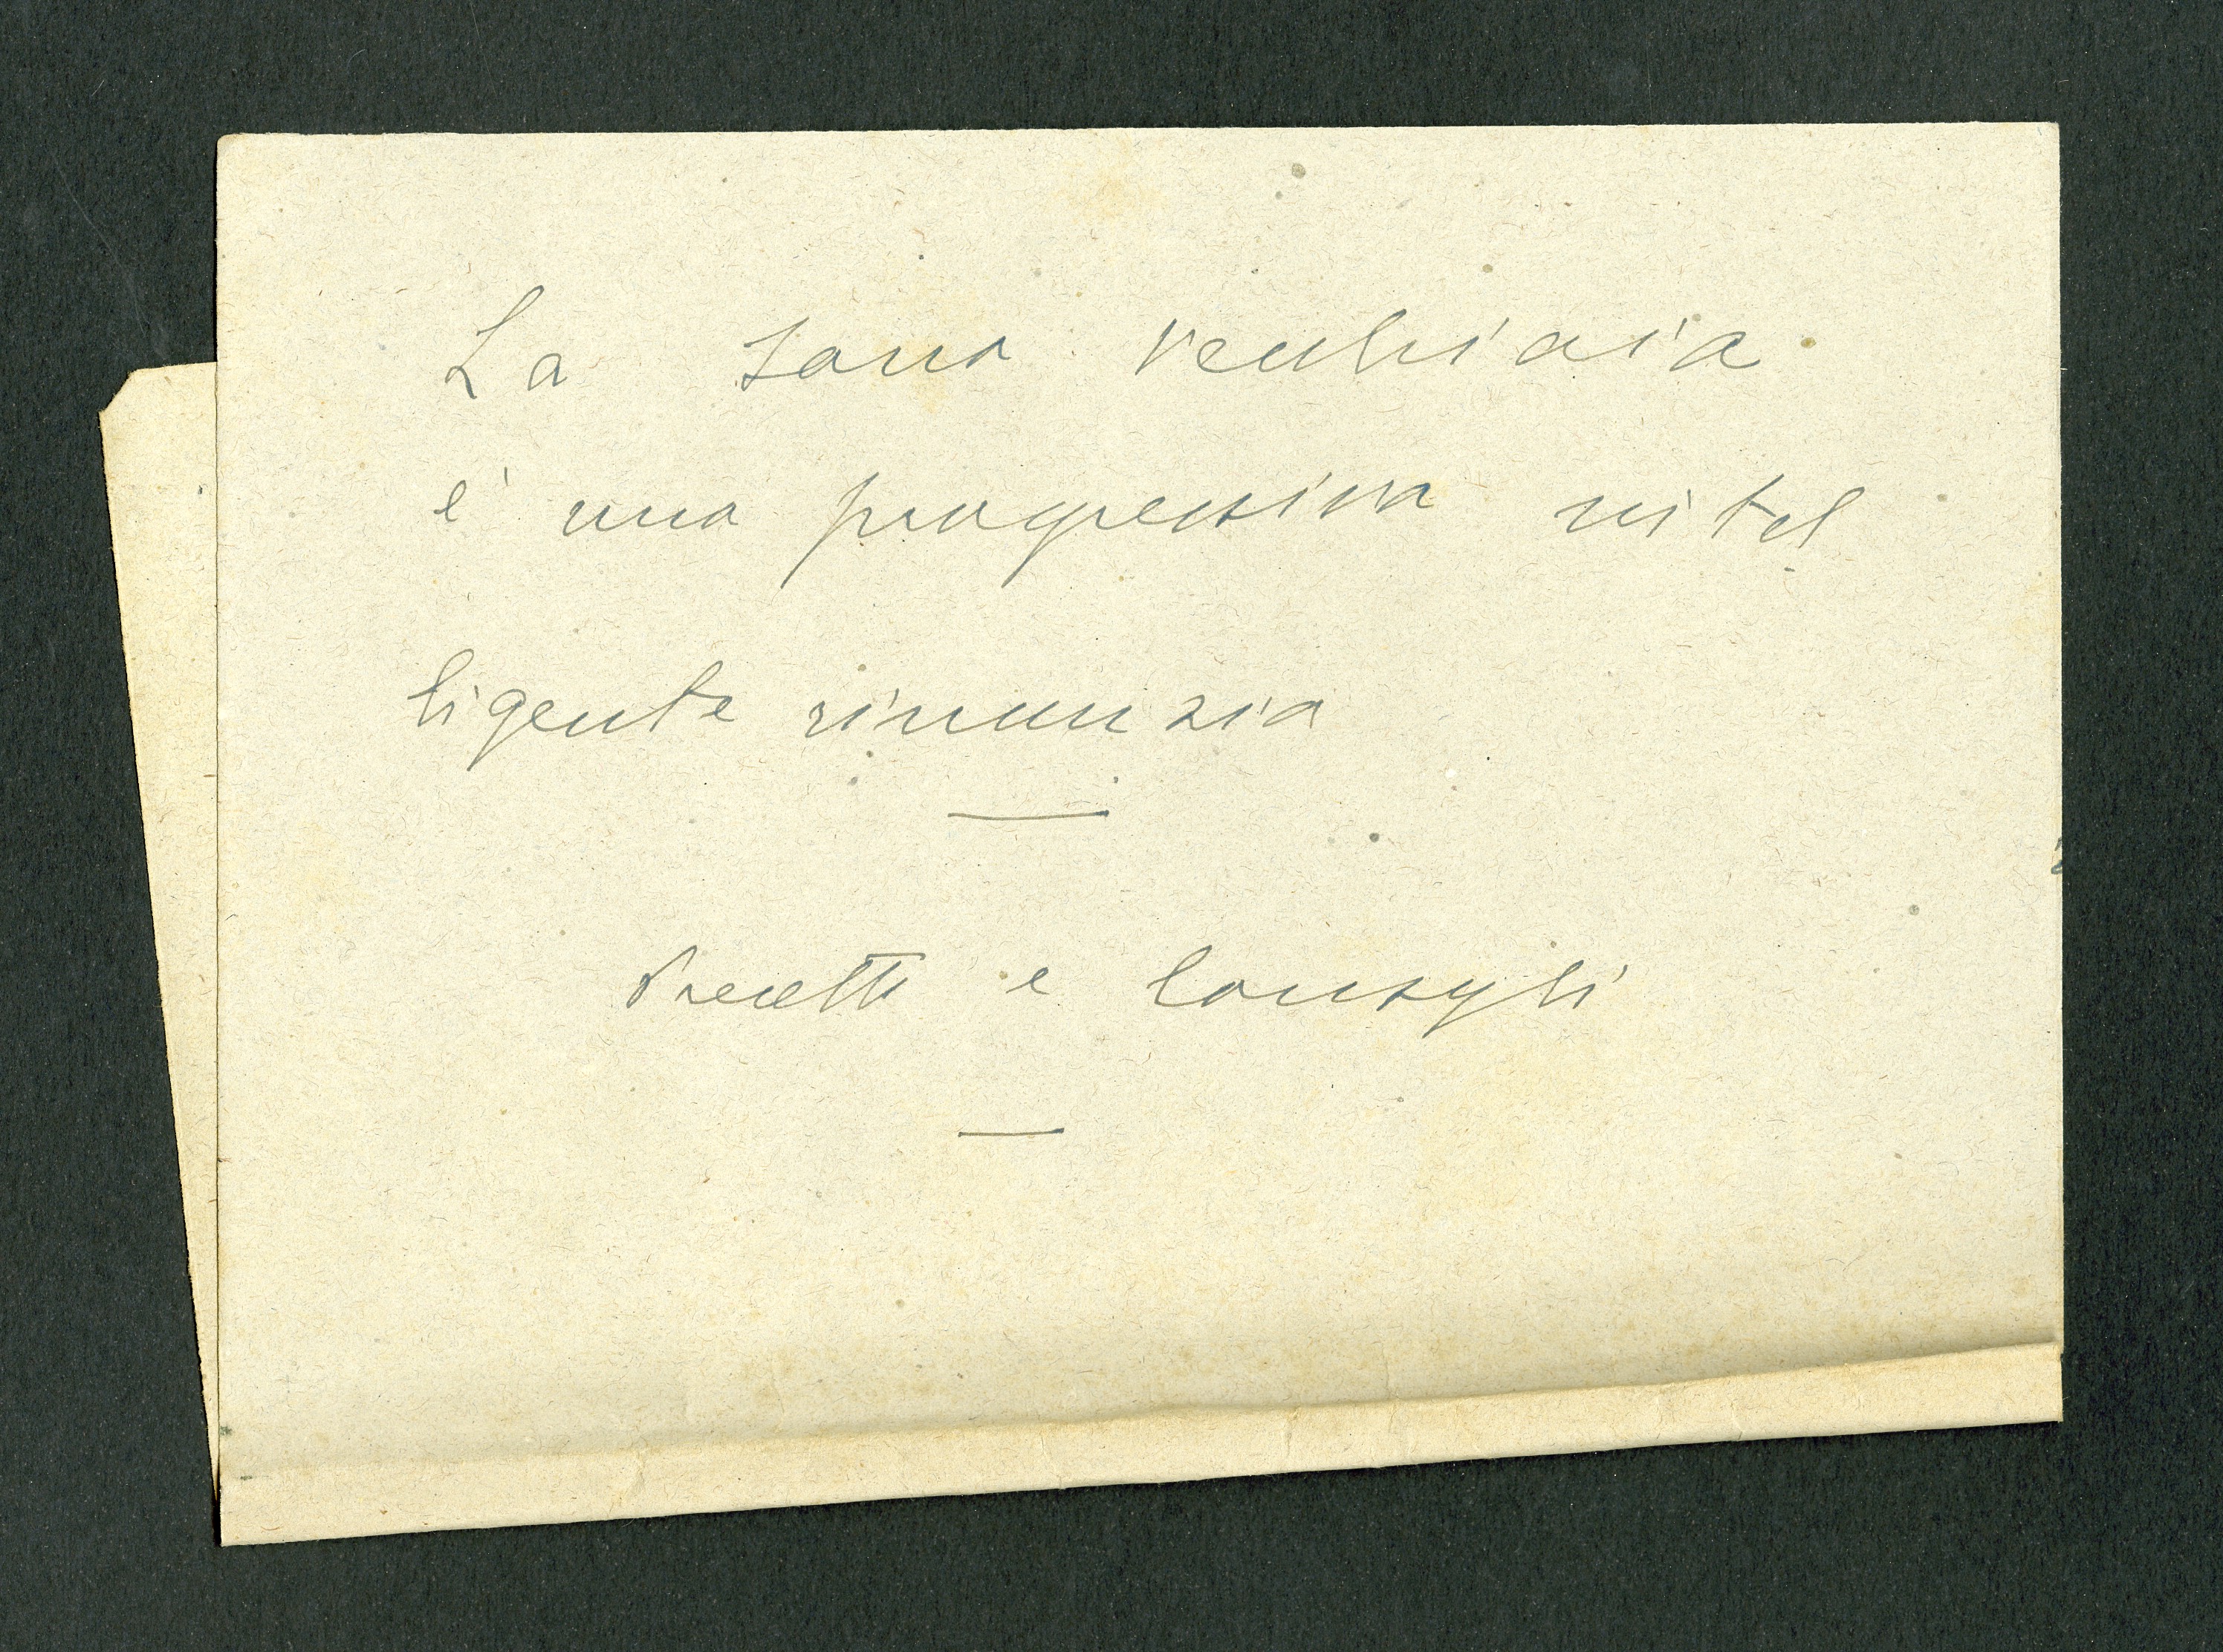 La sana vecchiaia
è una progressiva intel
ligente rinunzia
Precetti e consigli